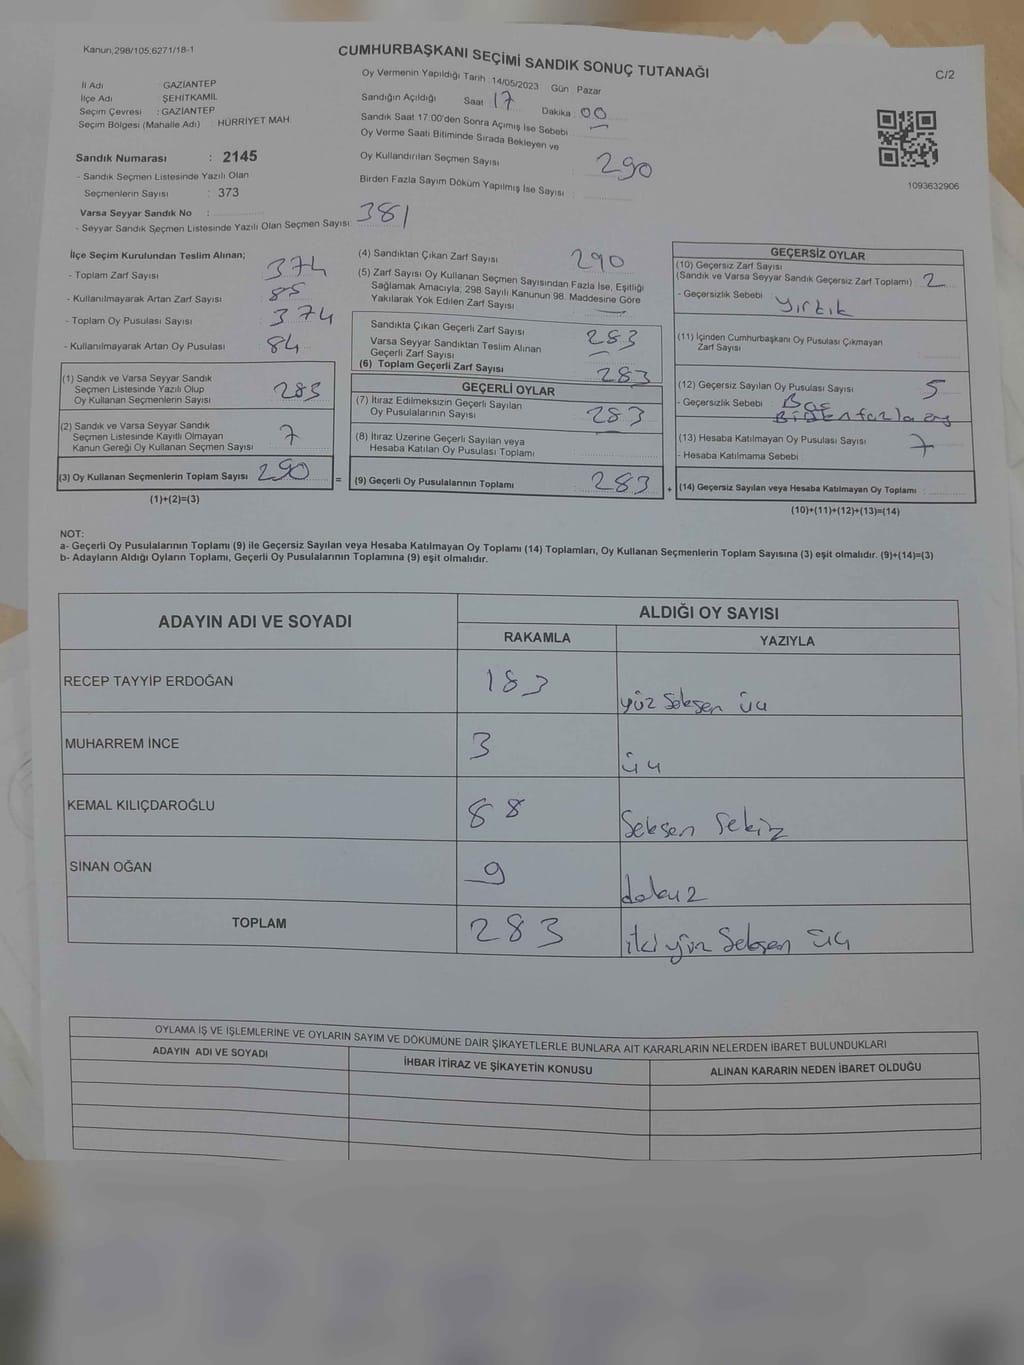 Kanun,298/105,6271/18-1
CUMHURBAŞKANI SEÇİMİ SANDIK SONUÇ TUTANAĞI
C/2
İl Adı : GAZİANTEP
İlçe Adı : ŞEHİTKAMİL
Seçim Çevresi : GAZİANTEP
Seçim Bölgesi (Mahalle Adı) : HÜRRİYET MAH.
Sandık Numarası : 2145
- Sandık Seçmen Listesinde Yazılı Olan
Seçmenlerin Sayısı : 373
Varsa Seyyar Sandık No :
- Seyyar Sandık Seçmen Listesinde Yazılı Olan Seçmen Sayısı: 381
Oy Vermenin Yapıldığı Tarih : 14/05/2023 Gün : Pazar
Sandığın Açıldığı Saat : 17 Dakika : 00
Sandık Saat 17:00'den Sonra Açımış İse Sebebi : —
Oy Verme Saati Bitiminde Sırada Bekleyen ve
Oy Kullandırılan Seçmen Sayısı : 290
Birden Fazla Sayım Döküm Yapılmış İse Sayısı :
1093632906
İlçe Seçim Kurulundan Teslim Alınan;
- Toplam Zarf Sayısı : 374
- Kullanılmayarak Artan Zarf Sayısı : 85
- Toplam Oy Pusulası Sayısı : 374
- Kullanılmayarak Artan Oy Pusulası : 84
(1) Sandık ve Varsa Seyyar Sandık
Seçmen Listesinde Yazılı Olup
Oy Kullanan Seçmenlerin Sayısı : 283
(2) Sandık ve Varsa Seyyar Sandık
Seçmen Listesinde Kayıtlı Olmayan
Kanun Gereği Oy Kullanan Seçmen Sayısı : 7
(3) Oy Kullanan Seçmenlerin Toplam Sayısı : 290
(1)+(2)=(3)
(4) Sandıktan Çıkan Zarf Sayısı : 290
(5) Zarf Sayısı Oy Kullanan Seçmen Sayısından Fazla İse, Eşitliği
Sağlamak Amacıyla; 298 Sayılı Kanunun 98. Maddesine Göre
Yakılarak Yok Edilen Zarf Sayısı : —
Sandıkta Çıkan Geçerli Zarf Sayısı : 283
Varsa Seyyar Sandıktan Teslim Alınan
Geçerli Zarf Sayısı : —
(6) Toplam Geçerli Zarf Sayısı : 283
GEÇERLİ OYLAR
(7) İtiraz Edilmeksizin Geçerli Sayılan
Oy Pusulalarının Sayısı : 283
(8) İtiraz Üzerine Geçerli Sayılan veya
Hesaba Katılan Oy Pusulası Toplamı : —
= (9) Geçerli Oy Pusulalarının Toplamı : 283
GEÇERSİZ OYLAR
(10) Geçersiz Zarf Sayısı
(Sandık ve Varsa Seyyar Sandık Geçersiz Zarf Toplamı) : 2
- Geçersizlik Sebebi : yırtık
(11) İçinden Cumhurbaşkanı Oy Pusulası Çıkmayan
Zarf Sayısı :
(12) Geçersiz Sayılan Oy Pusulası Sayısı : 5
- Geçersizlik Sebebi : Boş
Birden fazla
(13) Hesaba Katılmayan Oy Pusulası Sayısı : 7
- Hesaba Katılmama Sebebi :
+ (14) Geçersiz Sayılan veya Hesaba Katılmayan Oy Toplamı :
(10)+(11)+(12)+(13)=(14)
NOT:
a- Geçerli Oy Pusulalarının Toplamı (9) ile Geçersiz Sayılan veya Hesaba Katılmayan Oy Toplamı (14) Toplamları, Oy Kullanan Seçmenlerin Toplam Sayısına (3) eşit olmalıdır. (9)+(14)=(3)
b- Adayların Aldığı Oyların Toplamı, Geçerli Oy Pusulalarının Toplamına (9) eşit olmalıdır.
ADAYIN ADI VE SOYADI ALDIĞI OY SAYISI
RAKAMLA YAZIYLA
RECEP TAYYİP ERDOĞAN 183 yüz Seksen üç
MUHARREM İNCE 3 üç
KEMAL KILIÇDAROĞLU 88 Seksen Sekiz
SİNAN OĞAN 9 dokuz
TOPLAM 283 iki yüz Seksen üç
OYLAMA İŞ VE İŞLEMLERİNE VE OYLARIN SAYIM VE DÖKÜMÜNE DAİR ŞİKAYETLERLE BUNLARA AİT KARARLARIN NELERDEN İBARET BULUNDUKLARI
ADAYIN ADI VE SOYADI İHBAR İTİRAZ VE ŞİKAYETİN KONUSU ALINAN KARARIN NEDEN İBARET OLDUĞU